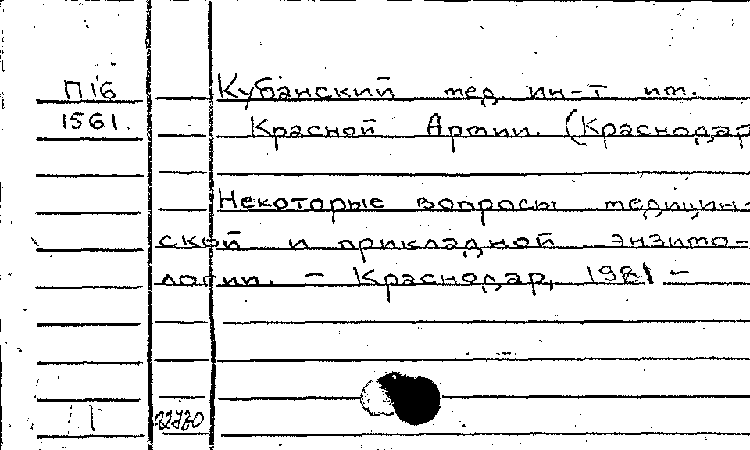 П16
1561.
Кубанский мед. ин-т им.
Красной Армии. (Краснодар
Некоторые вопросы медицин-
ской и прикладной энзимо-
логии. – Краснодар, 1981 –
П